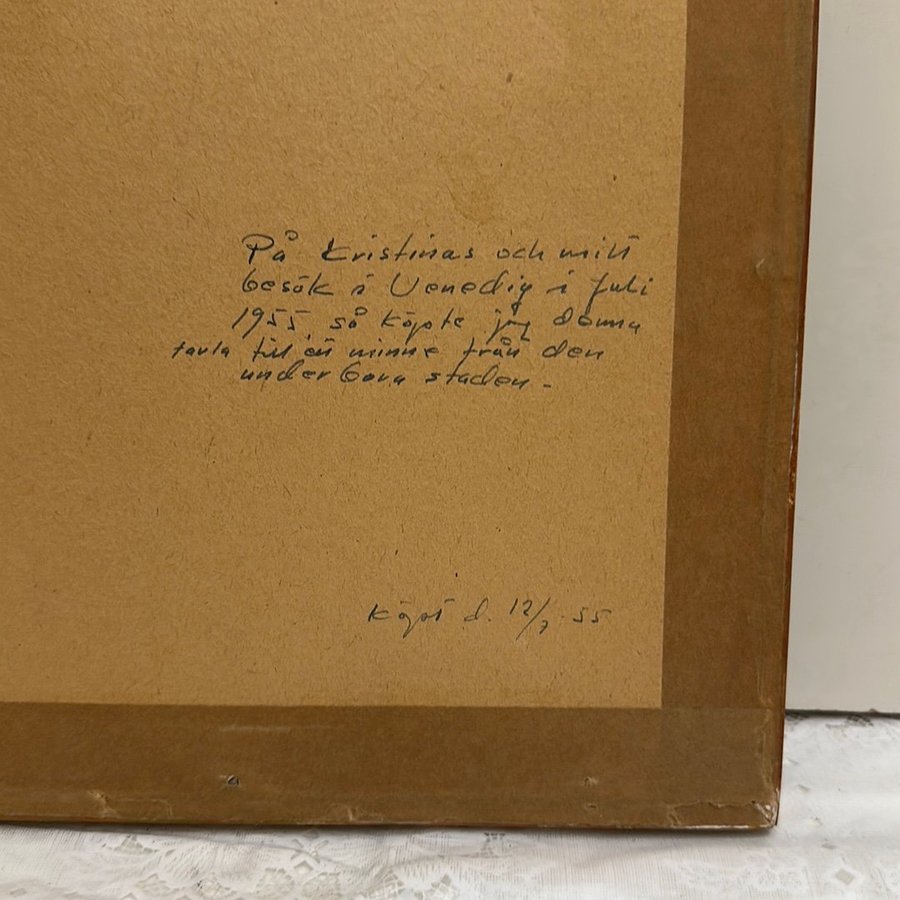 På Kristinas och mitt
besök i Venedig i Juli
1955 så köpte jag denna
tavla till ett minne från den
underbara staden.-
Köpt d. 12/7-55